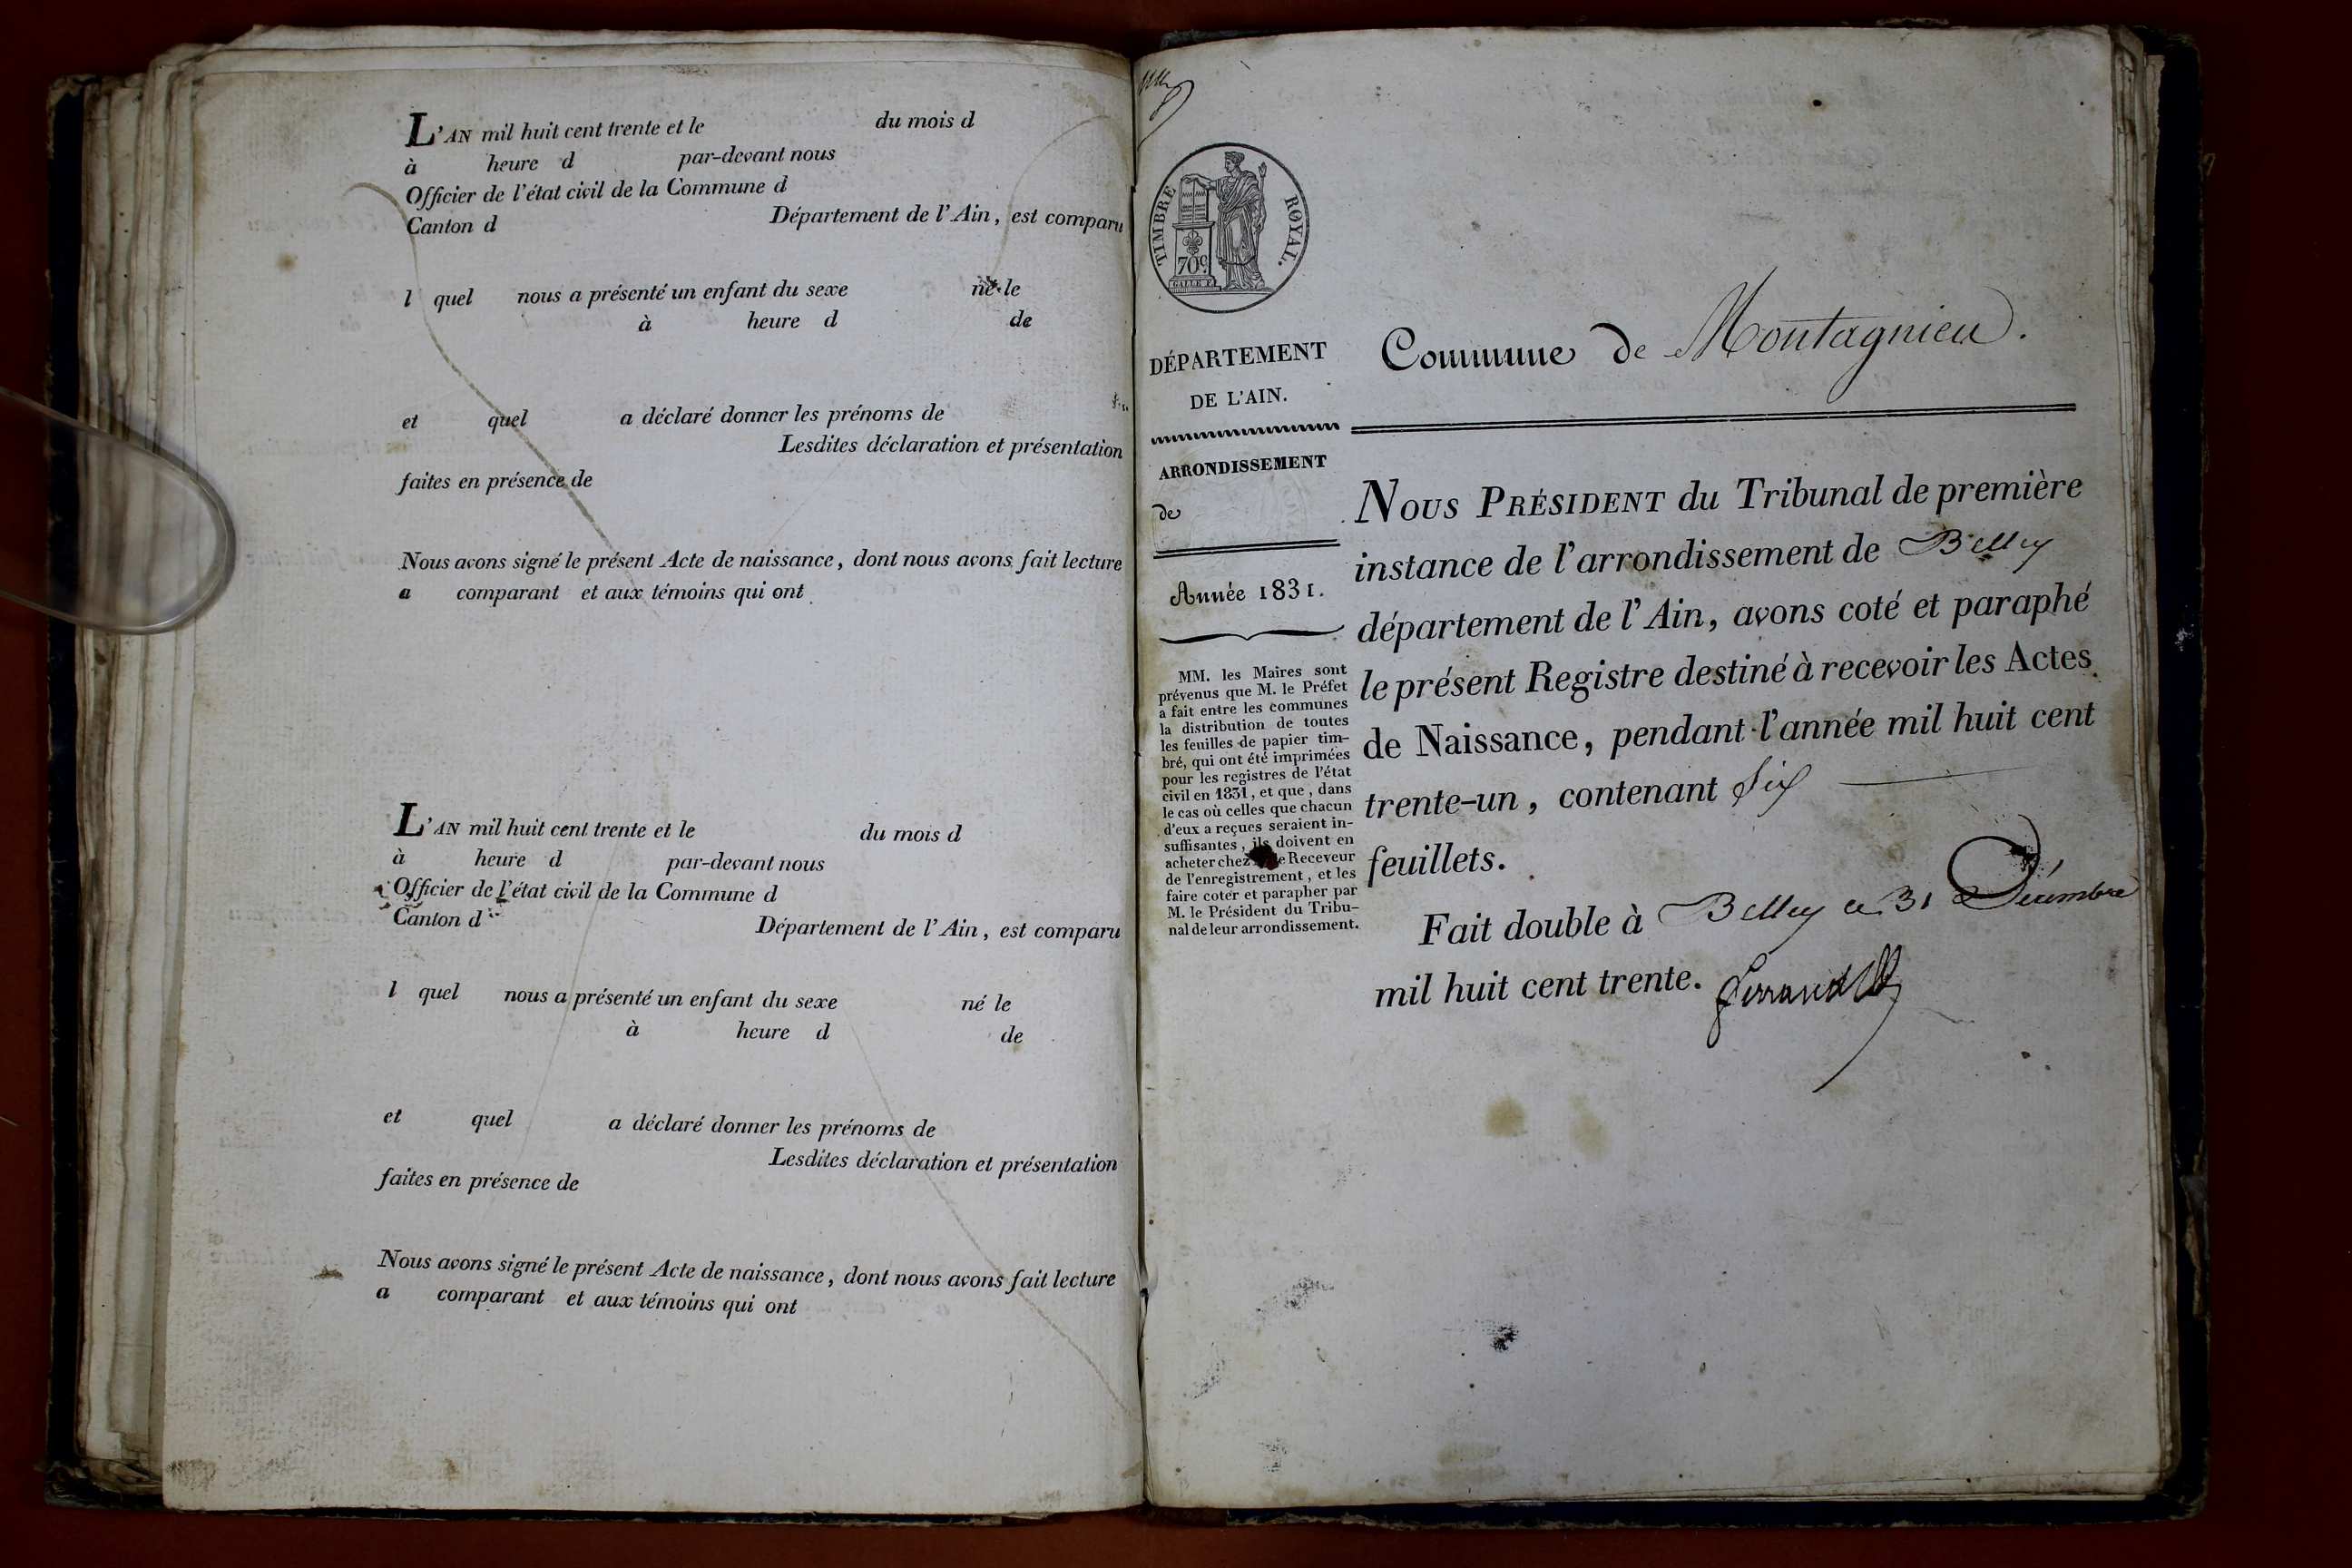 L'AN mil huit cent trente et le du mois d
à heure d par-devant nous
Officier de l'état civil de la Commune d
Canton d Département de l'Ain, est comparu
l quel nous a présenté un enfant du sexe né le
à heure d de
et quel a déclaré donner les prénoms de
Lesdites déclaration et présentation
faites en présence de
Nous avons signé le présent Acte de naissance, dont nous avons fait lecture
a comparant et aux témoins qui ont
L'AN mil huit cent trente et le du mois d
à heure d par-devant nous
Officier de l'état civil de la Commune d
Canton d Département de l'Ain, est comparu
l quel nous a présenté un enfant du sexe né le
à heure d de
et quel a déclaré donner les prénoms de
Lesdites déclaration et présentation
faites en présence de
Nous avons signé le présent Acte de naissance, dont nous avons fait lecture
a comparant et aux témoins qui ont
TIMBRE ROYAL.
70c
GALLE F.
DÉPARTEMENT
DE L'AIN.
ARRONDISSEMENT
de
Année 1831.
MM. les Maires sont
prévenus que M. le Préfet
a fait entre les communes
la distribution de toutes
les feuilles de papier tim-
bré, qui ont été imprimées
pour les registres de l'état
civil en 1831, et que, dans
le cas où celles que chacun
d'eux a reçues seraient in-
suffisantes, ils doivent en
acheter chez le Receveur
de l'enregistrement, et les
faire coter et parapher par
M. le Président du Tribu-
nal de leur arrondissement.
Commune de Montagnieu.
NOUS PRÉSIDENT du Tribunal de première
instance de l'arrondissement de Belley
département de l'Ain, avons coté et paraphé
le présent Registre destiné à recevoir les Actes
de Naissance, pendant l'année mil huit cent
trente-un, contenant Six
feuillets.
Fait double à Belley ce 31 Décembre
mil huit cent trente.